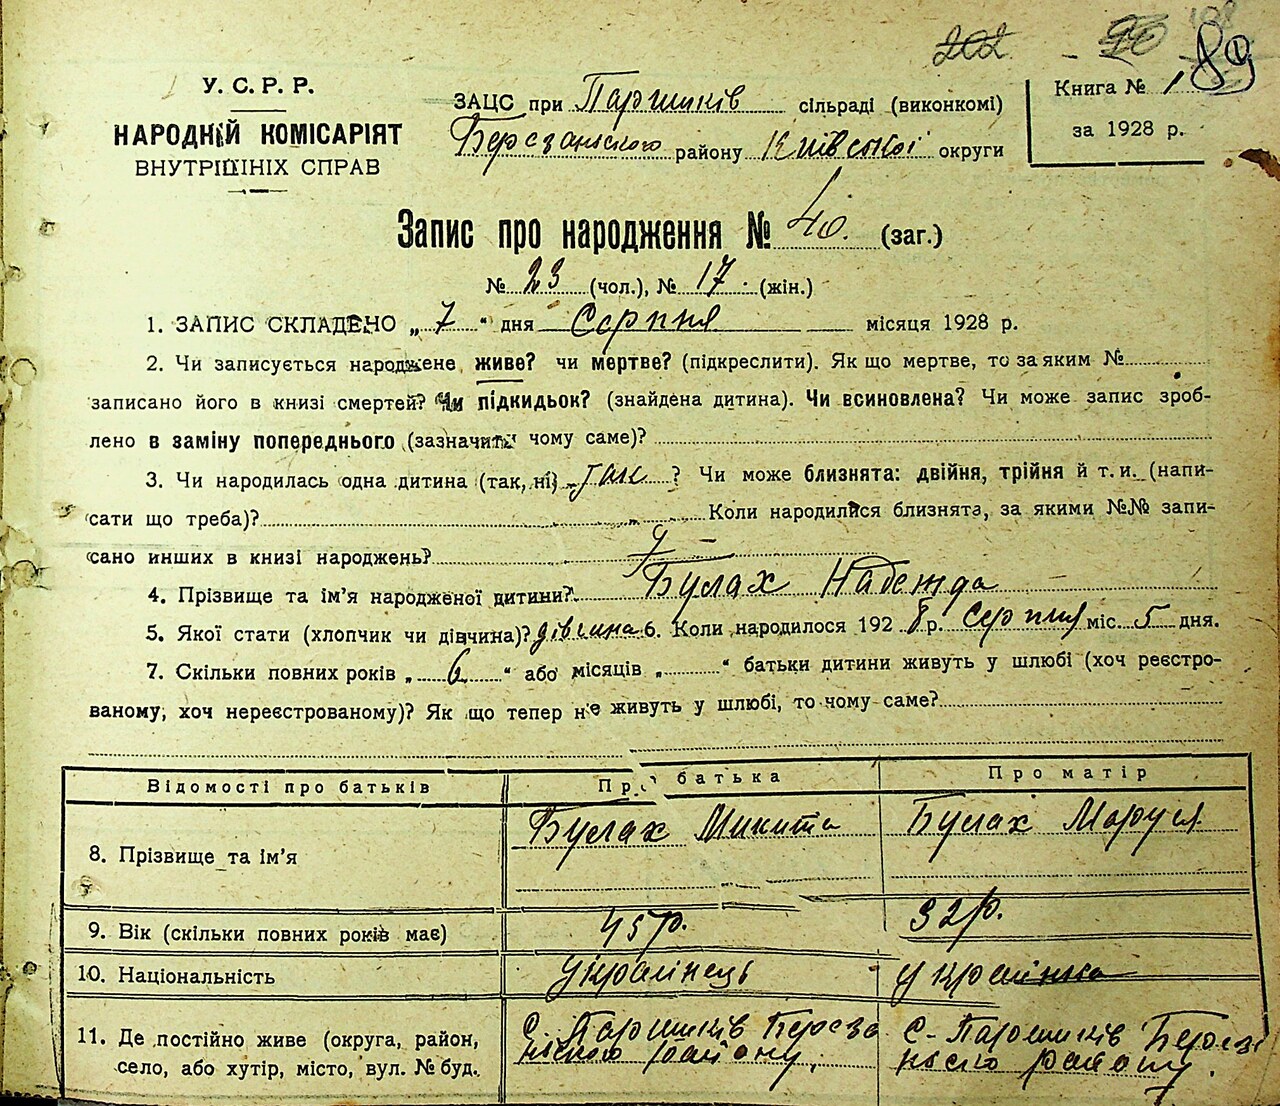 202 20 198
89
У. С. Р. Р.
НАРОДНІЙ КОМІСАРІЯТ
ВНУТРІШНІХ СПРАВ
ЗАЦС при Паришків сільраді (виконкомі)
Березанського району Київської округи
Книга № 1
за 1928 р.
Запис про народження № 40. (заг.)
№ 23 (чол.), № 17. (жін.)
1. ЗАПИС СКЛАДЕНО „ 7 “ дня Серпня місяця 1928 р.
2. Чи записується народжене живе? чи мертве? (підкреслити). Як що мертве, то за яким №
записано його в книзі смертей? Чи підкидьок? (знайдена дитина). Чи всиновлена? Чи може запис зроб-
лено в заміну попереднього (зазначить чому саме)?
3. Чи народилась одна дитина (так, ні) так ? Чи може близнята: двійня, трійня й т. и. (напи-
сати що треба)? Коли народилися близнята, за якими №№ запи-
сано инших в книзі народжень?
4. Прізвище та ім’я народженої дитини? Булах Надежда
5. Якої стати (хлопчик чи дівчина)? дівчина 6. Коли народилося 192 8 р. Серпня міс. 5 дня.
7. Скільки повних років „ 6 “ або місяців „ “ батьки дитини живуть у шлюбі (хоч реєстро-
ваному, хоч нереєстрованому)? Як що тепер не живуть у шлюбі, то чому саме?
Відомості про батьків Про батька Про матір
8. Прізвище та ім’я Булах Микита Булах Маруся
9. Вік (скільки повних років має) 45 р. 32 р.
10. Національність українець українка
11. Де постійно живе (округа, район,
село, або хутір, місто, вул. № буд.
С. Паришків Береза
нського району.
С-Паришків Берез
нського району.